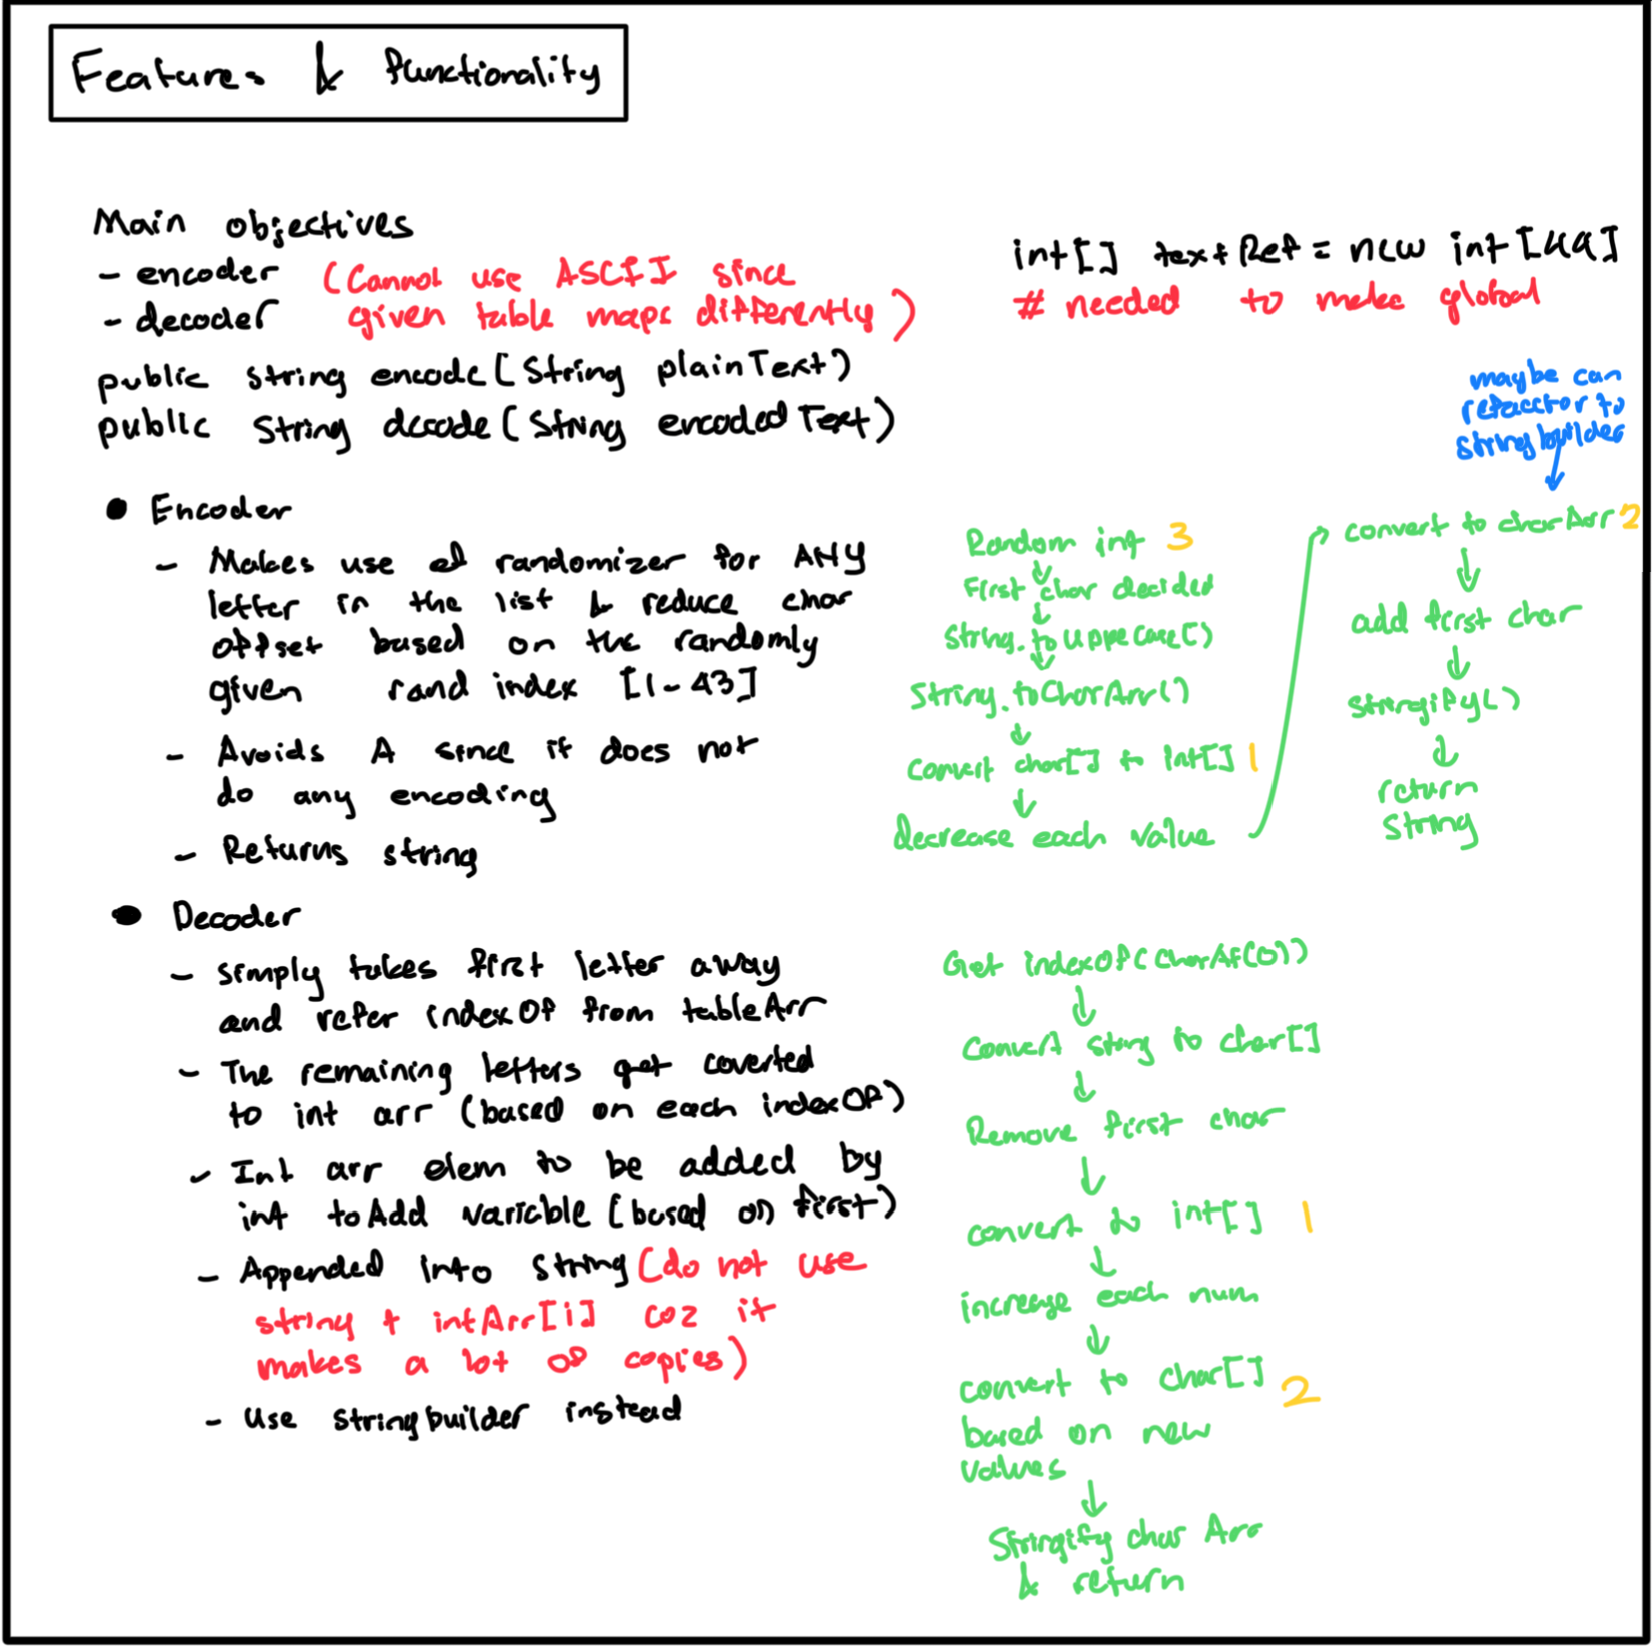 Features & functionality
Main objectives
- encoder (Cannot use ASCII since
- decoder given table maps differently)
public string encode(String plainText)
public String decode(String encodedText)
int[] textRef = new int[44]
# needed to make global
maybe can
refacctor to
stringbuilder
● Encoder
- Makes use of randomizer for ANY
letter in the list & reduce char
offset based on the randomly
given rand index [1-43]
- Avoids A since it does not
do any encoding
- Returns string
Random int 3
↓
First char decided
↓
String.toUppeCase()
↓
String.toCharArr()
↓
Convert char[] to int[] 1
↓
decrease each value
→ convert to charArr 2
↓
add first char
↓
stringify()
↓
return
string
● Decoder
- simply takes first letter away
and refer indexOf from tableArr
- The remaining letters get coverted
to int arr (based on each indexOf)
- Int arr elem to be added by
int toAdd variable (based on first)
- Appended into string (do not use
string + intArr[i] coz it
makes a lot of copies)
- Use stringbuilder instead
Get indexOf(charAt(0))
↓
Convert string to char[]
↓
Remove first char
↓
convert to int[] 1
↓
increase each num
↓
convert to char[] 2
based on new
values
↓
Stringify char Arr
& return